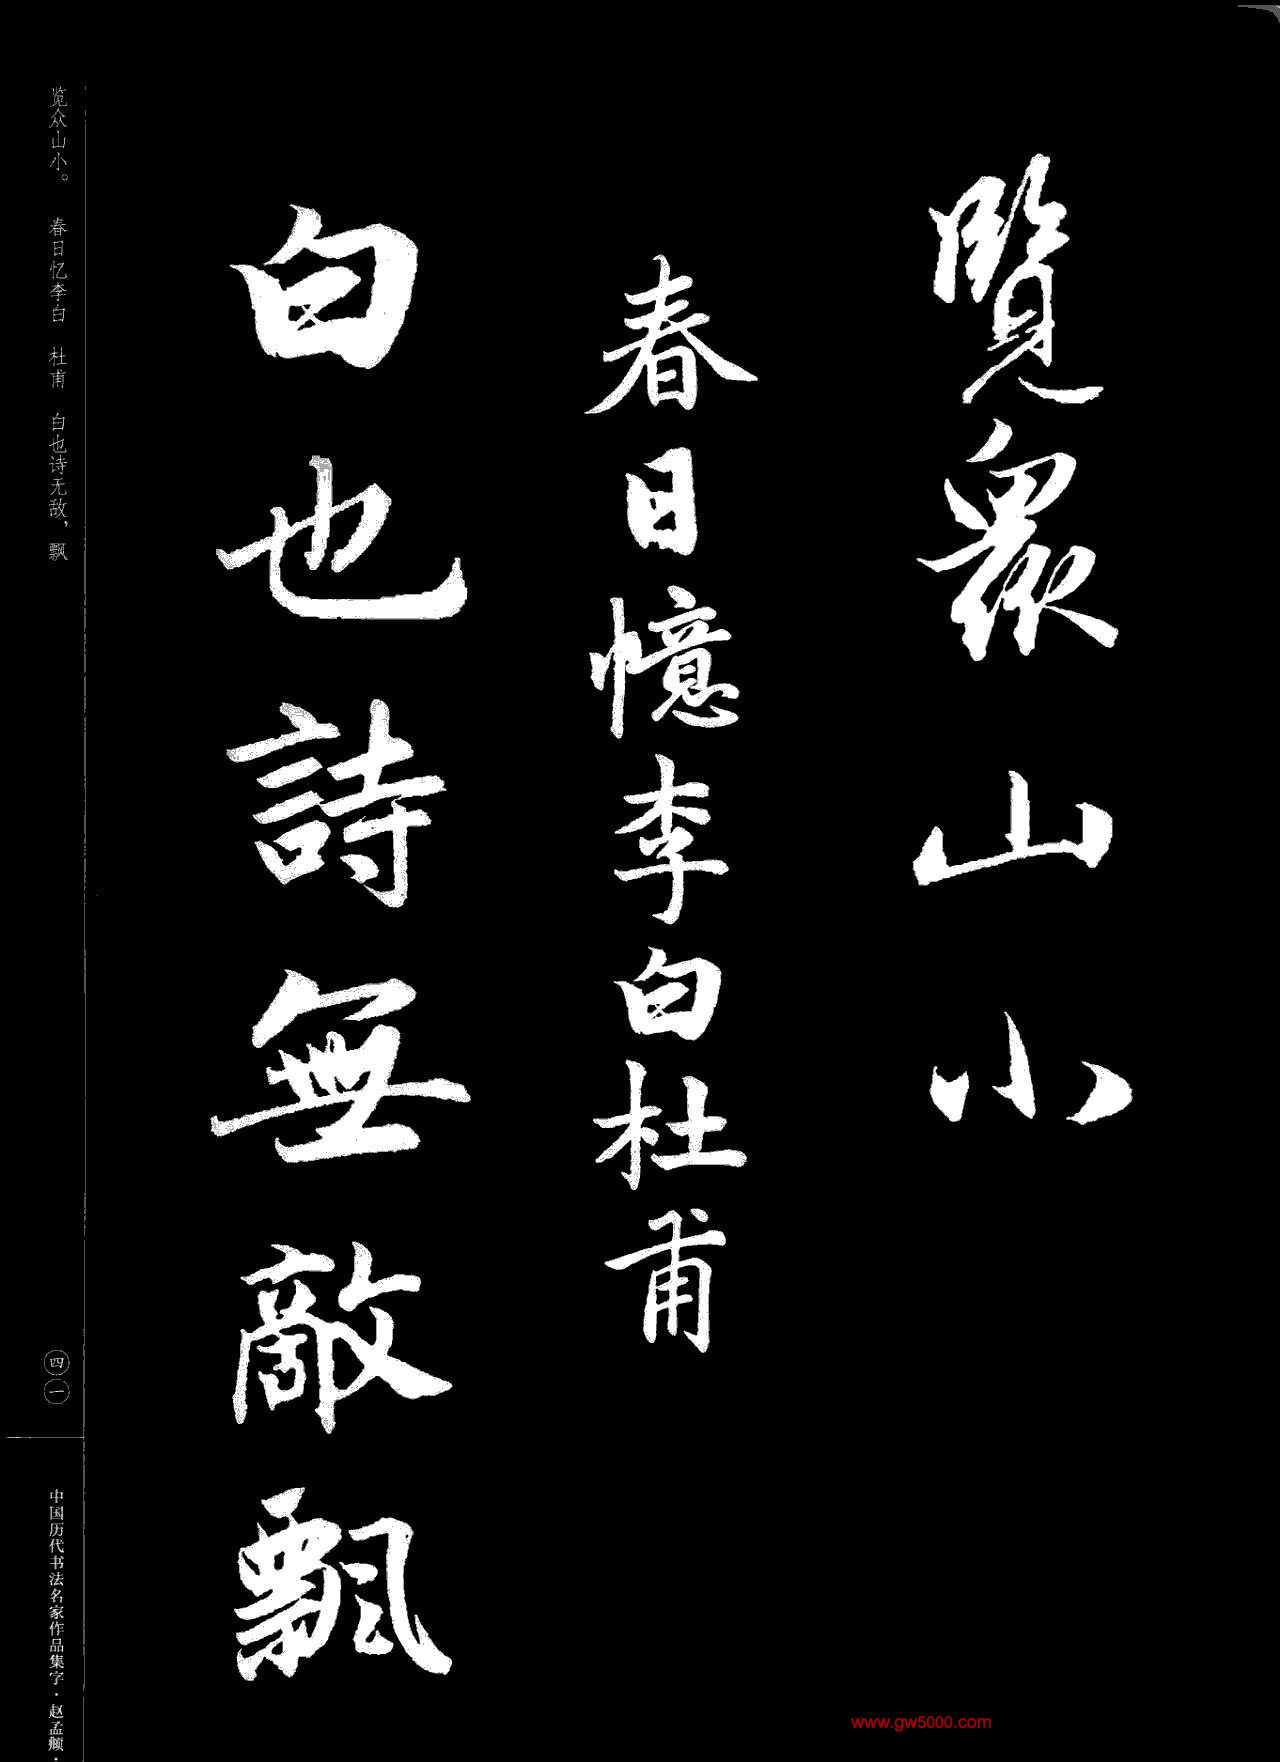 覽衆山小
春日憶李白杜甫
白也詩無敵飄
览众山小。 春日忆李白 杜甫 白也诗无敌，飘
四一
中国历代书法名家作品集字·赵孟頫·
www.gw5000.com